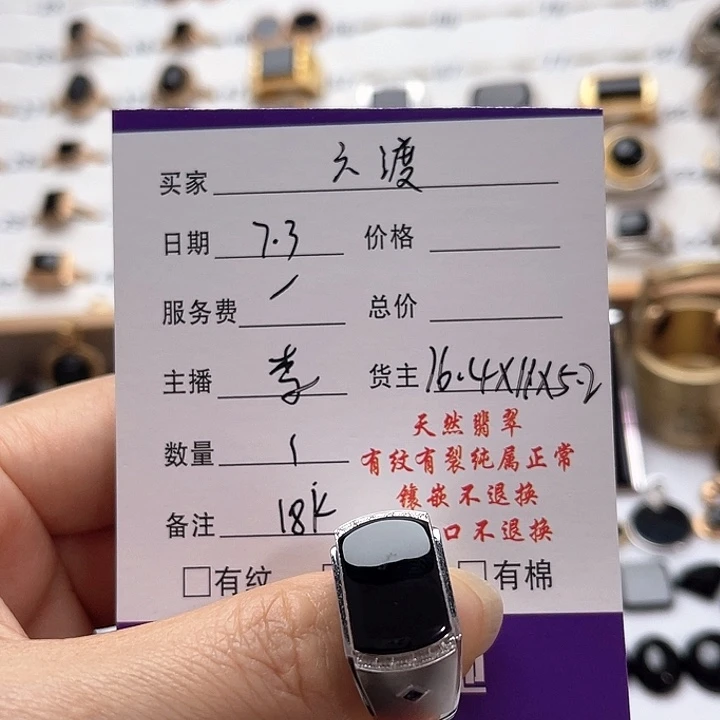 买家 六渡
日期 7.3 价格
服务费 /
总价
主播 李 货主 16.4X11X5.2
天然翡翠
数量 1
有纹有裂纯属正常
镶嵌不退换
备注 18K
口不退换
□有纹 □有棉